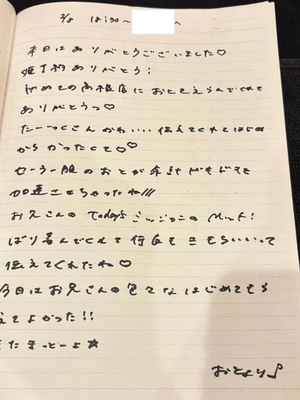 2/8 18:30〜
本日はありがとうございました♡
姫予約ありがとう!
初めての高根店におとどえらんでくれて
ありがとうっ♡
たーーっくさんかわいい伝えてくれてはじめ
からかったくて♡♡
セーラー服のおとが余計ドキドキを
加速させちゃったね///
お兄さんのToday's ミッションのハント!
ばり喜んでくれて何度もきもちいいって
伝えてくれたね♡
今日はお兄さんの色々なはじめてもら
えてよかった!!
またまっとーよ☆
おとより♪